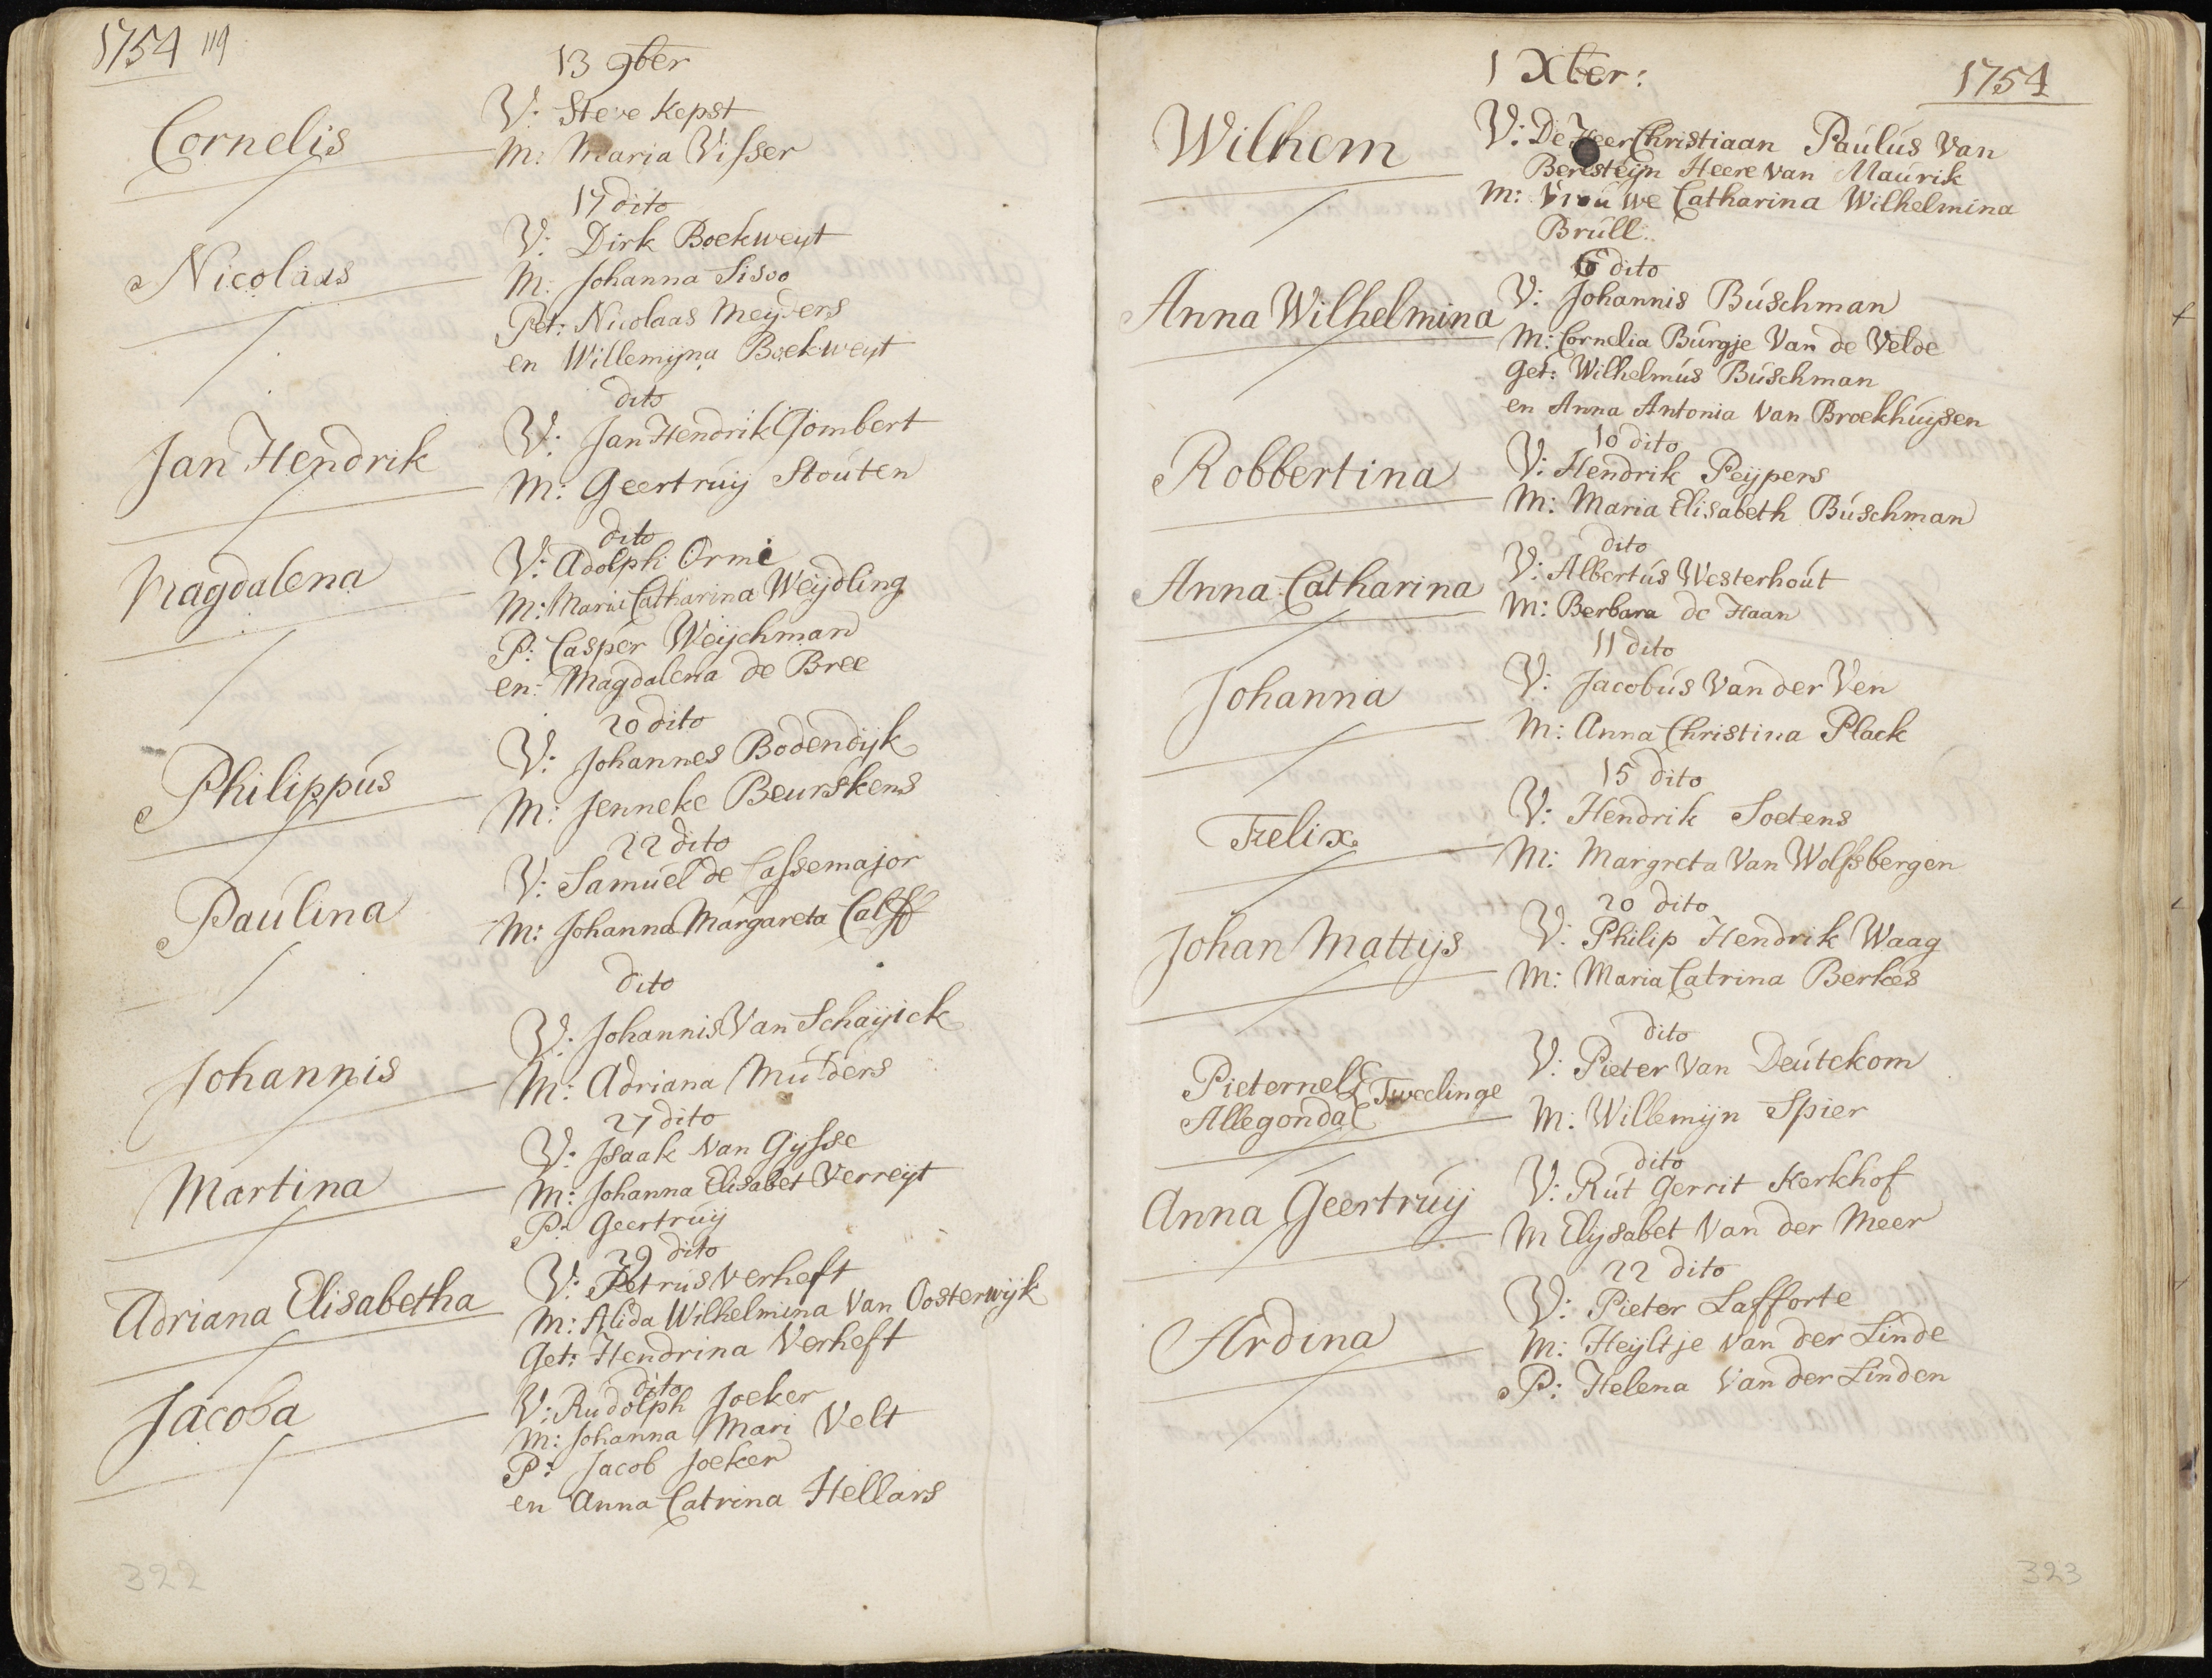 1754 119
13 9ber
Cornelis
V: Steve Kepst
M: Maria Visser
17 dito
Nicolaas
V: Dirk Boekweyt
M: Johanna Sisoo
Pet: Nicolaas Meyders
en Willemijna Boekweyt
dito
Jan Hendrik
V: Jan Hendrik Gombert
M: Geertruij Stouten
dito
Magdalena
V: Adolph Orme
M: Maria Catharina Weijdling
P: Casper Weijchman
en: Magdalena de Bree
20 dito
Philippus
V: Johannes Bodendijk
M: Jenneke Beurskens
22 dito
Paulina
V: Samuel de Cassemajor
M: Johanna Margareta Calff
dito
Johannis
V: Johannis Van Schaijick
M: Adriana Mulders
27 dito
Martina
V: Isaak Van Gijsse
M: Johanna Elisabet Verreijt
P: Geertruij
29 dito
Adriana Elisabetha
V: Petrus Verheft
M: Alida Wilhelmina Van Oosterwijk
Get: Hendrina Verheft
dito
Jacoba
V: Rudolph Joeker
M: Johanna Mari Velt
P: Jacob Joeker
en Anna Catrina Hellars
322
1 Xber:
1754
Wilhem
V: De Heer Christiaan Paulus Van
Beresteijn Heere van Maurik
M: Vrouwe Catharina Wilhelmina
Brull
6 dito
Anna Wilhelmina
V: Johannis Buschman
M: Cornelia Burgje Van de Velde
Get: Wilhelmus Buschman
en Anna Antonia Van Broekhuijsen
10 dito
Robbertina
V: Hendrik Peijpers
M: Maria Elisabeth Buschman
dito
Anna Catharina
V: Albertus Westerhout
M: Berbara de Haan
11 dito
Johanna
V: Jacobus Van der Ven
M: Anna Christina Plack
15 dito
Felix
V: Hendrik Soetens
M: Margreta Van Wolfsbergen
20 dito
Johan Mattijs
V: Philip Hendrik Waag
M: Maria Catrina Berkes
dito
Pieternel
Allegonda
Tweelinge
V: Pieter Van Deutekom
M: Willemijn Spier
dito
Anna Geertruij
V: Rut Gerrit Kerkhof
M Elijsabet Van der Meer
22 dito
Ardina
V: Pieter Lafforte
M: Heijltje Van der Linde
P: Helena Van der Linden
323